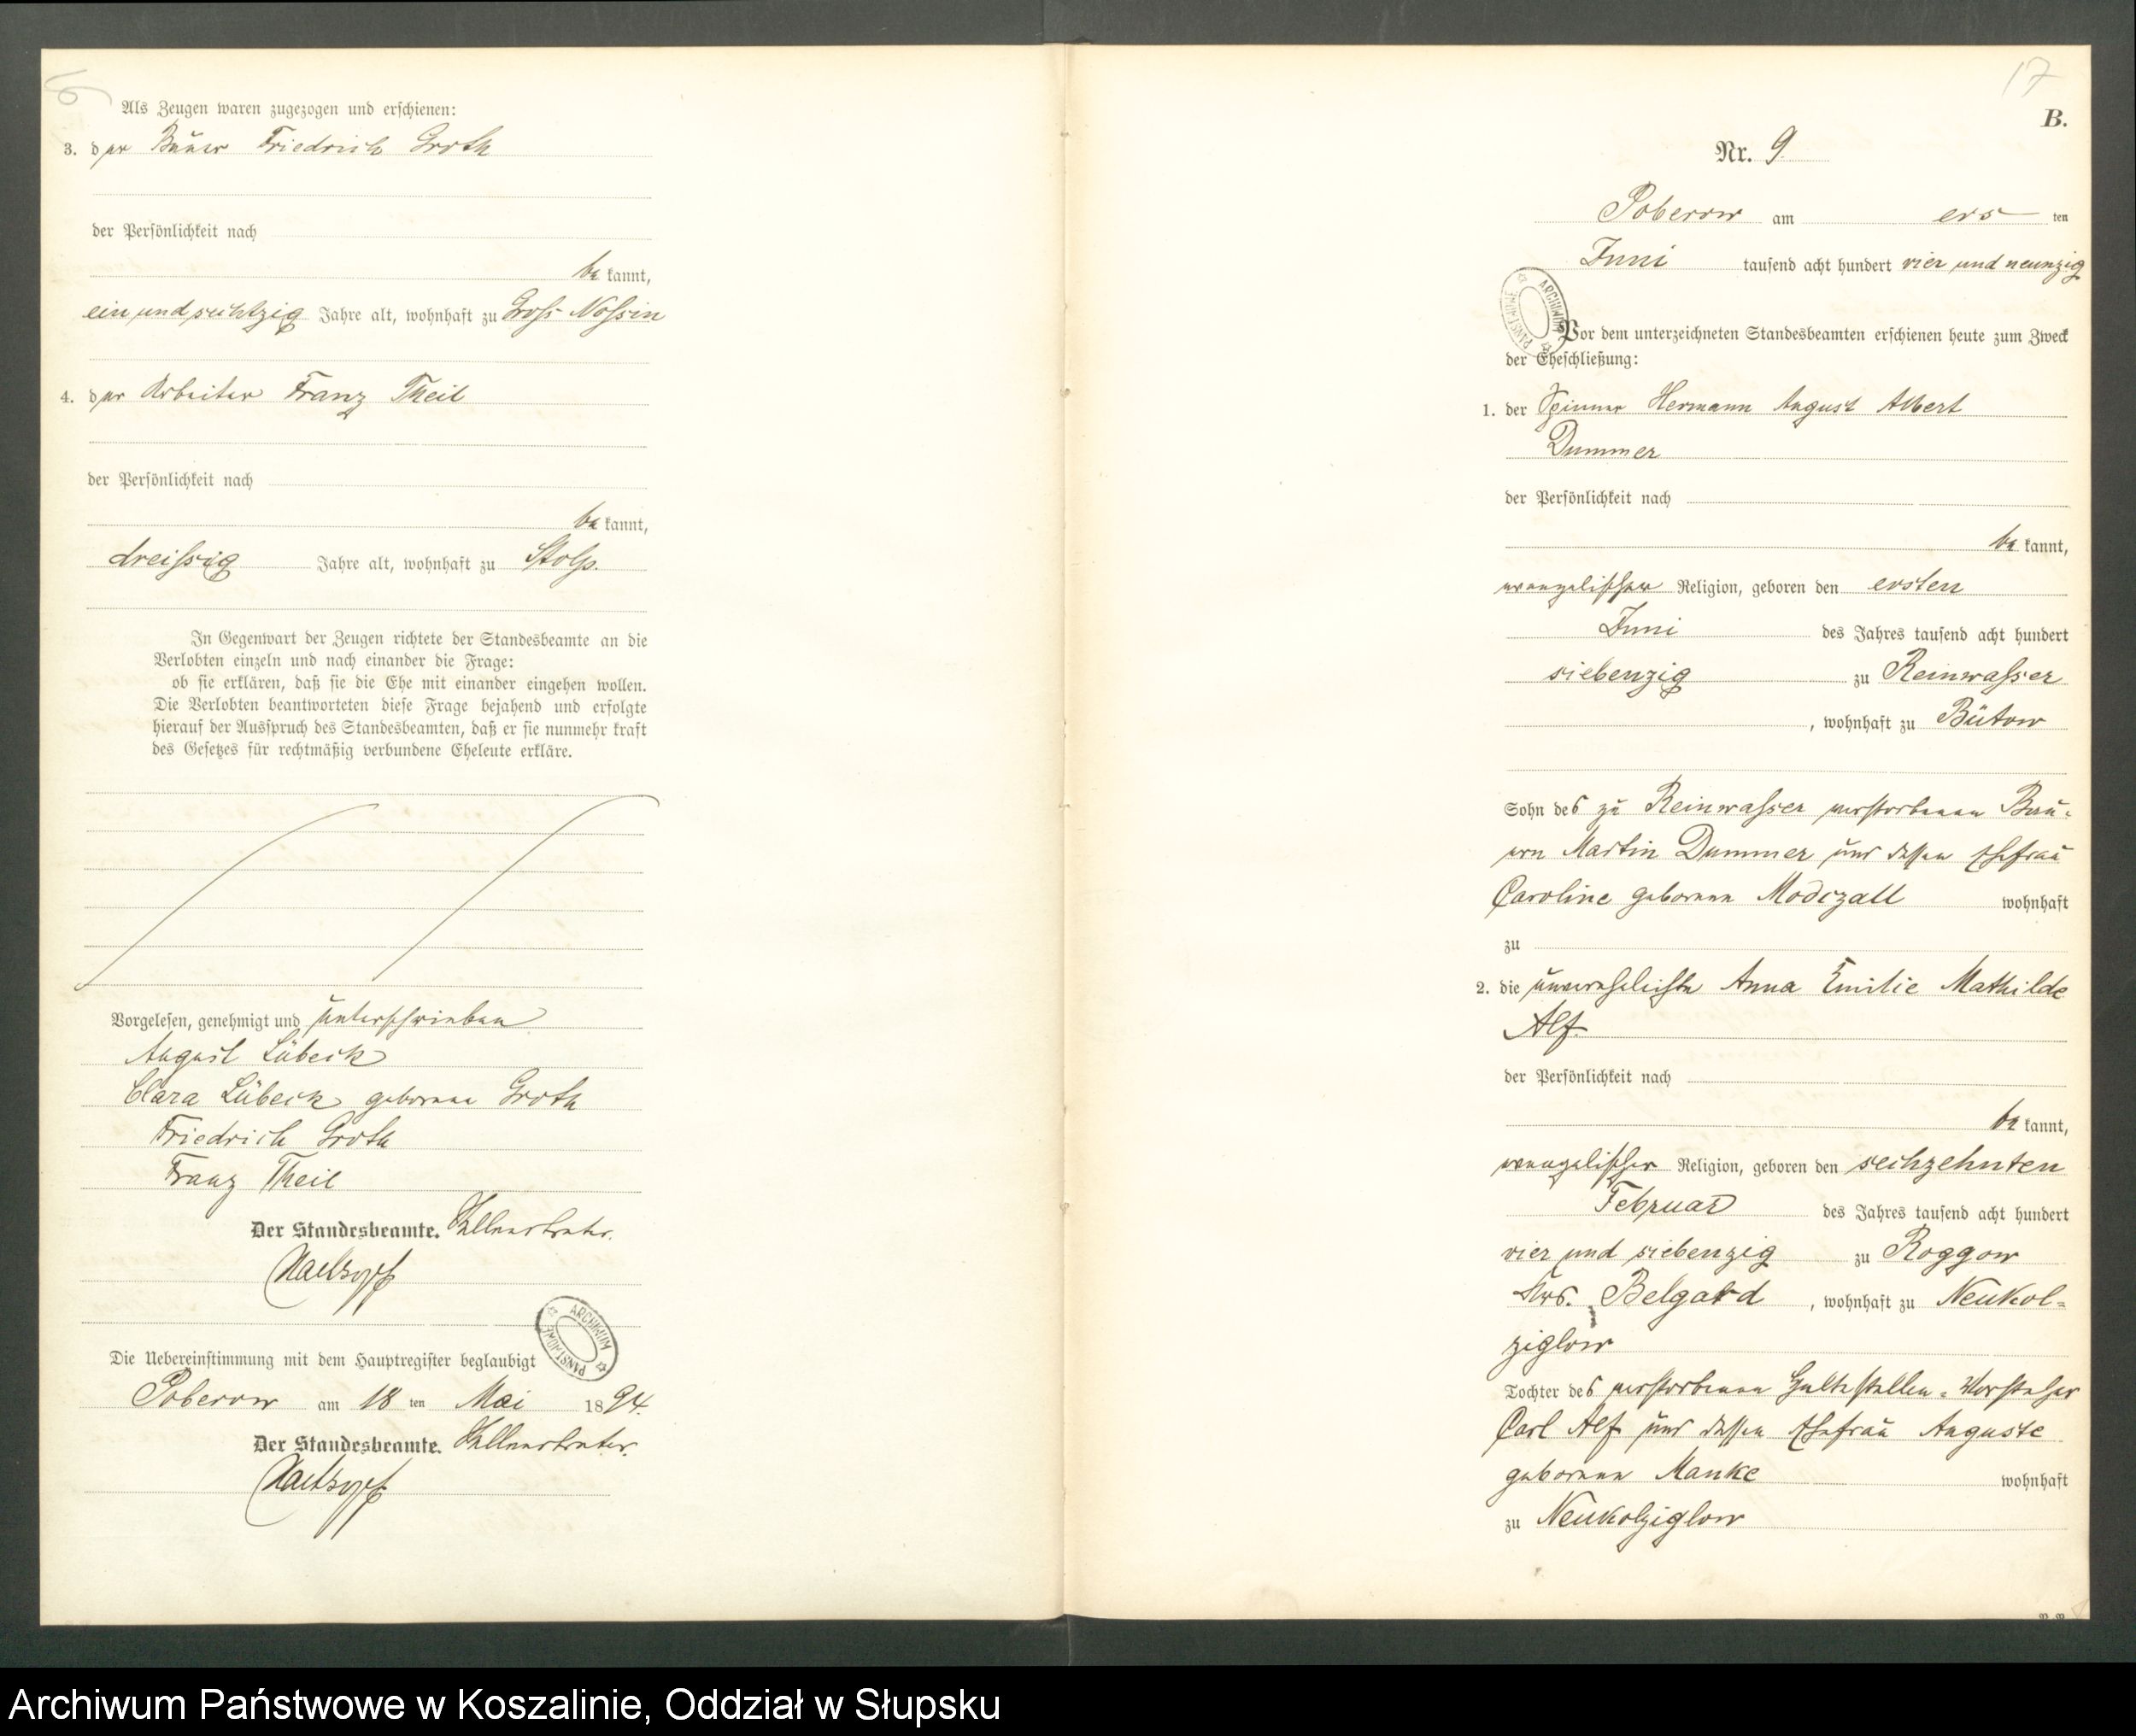 Als Zeugen waren zugezogen und erschienen:
3. der Bauer Friedrich Groth
der Persönlichkeit nach
be kannt,
ein und sechtzig Jahre alt, wohnhaft zu Gross Nossin
4. der Arbeiter Franz Theil
der Persönlichkeit nach
be kannt,
dreissig Jahre alt, wohnhaft zu Stolp.
In Gegenwart der Zeugen richtete der Standesbeamte an die
Verlobten einzeln und nach einander die Frage:
ob sie erklären, daß sie die Ehe mit einander eingehen wollen.
Die Verlobten beantworteten diese Frage bejahend und erfolgte
hierauf der Ausspruch des Standesbeamten, daß er sie nunmehr kraft
des Gesetzes für rechtmäßig verbundene Eheleute erkläre.
Vorgelesen, genehmigt und unterschrieben
August Lübeck
Clara Lübeck geborene Groth
Friedrich Groth
Franz Theil
Der Standesbeamte.
Die Uebereinstimmung mit dem Hauptregister beglaubigt
ARCHIWUM PAŃSTWOWE
Poberow am 18 ten Mai 1894.
Der Standesbeamte.
17
B.
Nr. 9.
Poberow am ers ten
Juni tausend acht hundert vier und neunzig
ARCHIWUM PAŃSTWOWE
Vor dem unterzeichneten Standesbeamten erschienen heute zum Zweck
der Eheschließung:
1. der Spinner Hermann August Albert
Dummer
der Persönlichkeit nach
be kannt,
evangelischer Religion, geboren den ersten
Juni des Jahres tausend acht hundert
siebenzig zu Reinwasser
, wohnhaft zu Bütow
Sohn des zu Reinwasser verstorbenen Bau-
ern Martin Dummer und dessen Ehefrau
Caroline geborene Modczall wohnhaft
zu
2. die unverehelichte Anna Emilie Mathilde
Alf
der Persönlichkeit nach
be kannt,
evangelischer Religion, geboren den sechzehnten
Februar des Jahres tausend acht hundert
vier und siebenzig zu Roggow
Krs. Belgard , wohnhaft zu Neukol-
ziglow
Tochter des verstorbenen Haltestellen-Vorsteher
Carl Alf und dessen Ehefrau Auguste
geborene Manke wohnhaft
zu Neukolziglow
Archiwum Państwowe w Koszalinie, Oddział w Słupsku